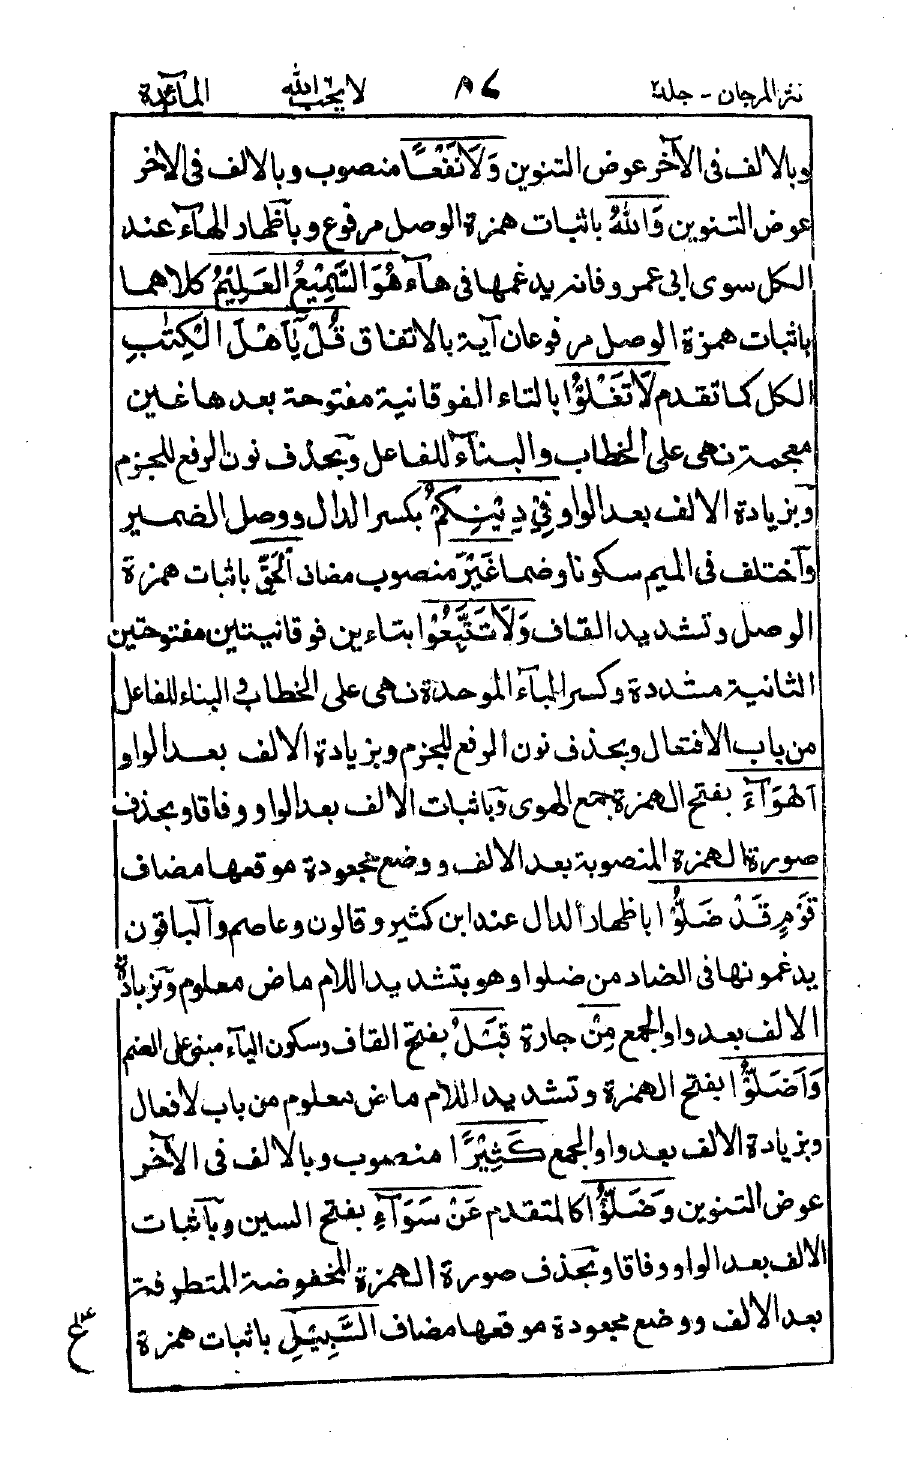 نثر المرجان - جلد٢ ٨٤ لا يحب الله المآئدة
وبالالف فى الآخر عوض التنوين وَلَا نَفْعًا منصوب وبالالف فى الاخر
عوض التنوين وَاللهُ باثبات همزة الوصل مرفوع وبآظهار الهآء عند
الكل سوى ابى عمرو فانه يدغمها فى هآء هُوَ السَّمِيْعُ الْعَلِيْمُ كلاهما
باثبات همزة الوصل مرفوعان آية بالاتفاق قُلْ يٰٓاَهْلَ الْكِتٰبِ
الكل كما تقدم لَا تَغْلُوْا بالتاء الفوقانية مفتوحة بعدها غين
معجمة نهى على الخطاب والبنآء للفاعل وبحذف نون الرفع للجزم
وبزيادة الالف بعد الواو فِيْ دِيْنِكُمْ بكسر الدال ووصل الضمير
وآختلف فى الميم سكونا وضما غَيْرَ منصوب مضاف الْحَقِّ باثبات همزة
الوصل وتشديد القاف وَلَا تَتَّبِعُوْا بتاءين فوقانيتين مفتوحتين
الثانية مشددة وكسر البآء الموحدة نهى على الخطاب والبناء للفاعل
من باب الافتعال وبحذف نون الرفع للجزم وبزيادة الالف بعد الواو
اَهْوَآءَ بفتح الهمزة جمع الهوى وباثبات الالف بعد الواو وفاقا وبحذف
صورة الهمزة المنصوبة بعد الالف ووضع مجعودة موقعها مضاف
قَوْمٍ قَدْ ضَلُّوْا باظهار الدال عند ابن كثير وقالون وعاصم والباقون
يدغمونها فى الضاد من ضلوا وهو بتشديد اللام ماض معلوم وبزيادة
الالف بعد واو الجمع مِنْ جارة قَبْلُ بفتح القاف وسكون البآء مبنى على الضم
وَاَضَلُّوْا بفتح الهمزة وتشديد اللام ماض معلوم من باب الافعال
وبزيادة الالف بعد واو الجمع كَثِيْرًا منصوب وبالالف فى الآخر
عوض التنوين وَضَلُّوْا كالمتقدم عَنْ سَوَآءِ بفتح السين وبآثبات
الالف بعد الواو وفاقا وبحذف صورة الهمزة المخفوضة المتطرفة
بعد الالف ووضع مجعودة موقعها مضاف السَّبِيْلِ باثبات همزة